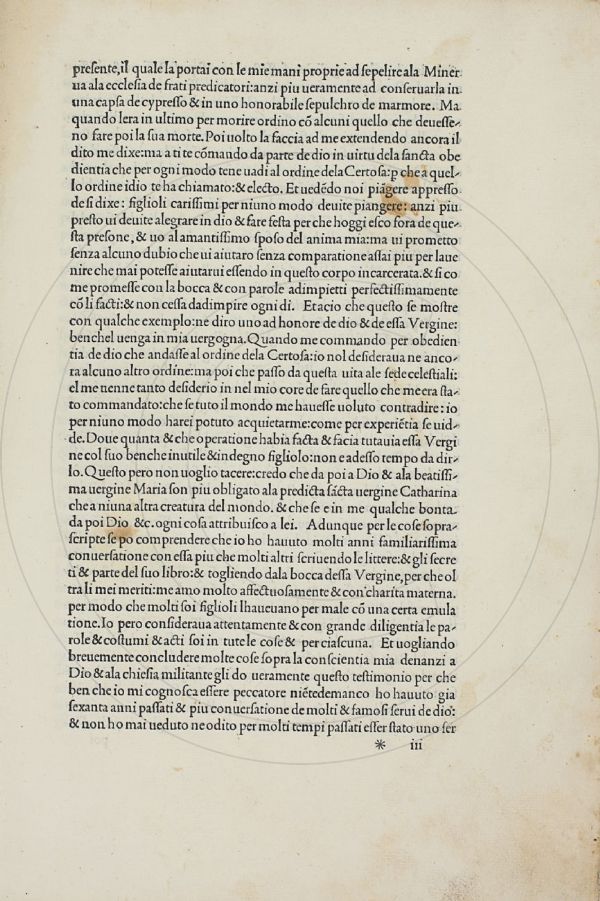 preſente,il quale la portai con le mie mani proprie ad ſepelire ala Miner
ua ala eccleſia de frati predicatori:anzi piu ueramente ad conſeruarla in
una capſa de cypreſſo & in uno honorabile ſepulchro de marmore. Ma
quando lera in ultimo per morire ordino cõ alcuni quello che deueſſe-
no fare poi la ſua morte. Poi uolto la faccia ad me extendendo ancora il
dito me dixe:ma a ti te cõmando da parte de dio in uirtu dela ſancta obe
dientia che per ogni modo tene uadi al ordine dela Certoſa:p che a quel-
lo ordine idio te ha chiamato:& electo. Et uedẽdo noi piãgere appreſſo
de ſi dixe: figlioli cariſſimi per niuno modo deuite piangere: anzi piu
preſto ui deuite alegrare in dio & fare feſta per che hoggi eſco fora de que-
ſta preſone, & uo al amantiſſimo ſpoſo del anima mia:ma ui prometto
ſenza alcuno dubio che ui aiutaro ſenza comparatione aſſai piu per laue
nire che mai poteſſe aiutarui eſſendo in queſto corpo incarcerata.& ſi co
me promeſſe con la bocca & con parole adimpietti perfectiſſimamente
cõ li facti:& non ceſſa dadimpire ogni di. Et acio che queſto ſe moſtre
con qualche exemplo:ne diro uno ad honore de dio & de eſſa Vergine:
benchel uenga in mia uergogna. Quando me commando per obedien
tia de dio che andaſſe al ordine dela Certoſa:io nol deſideraua ne anco-
ra alcuno altro ordine:ma poi che paſſo da queſta uita ale ſede celeſtiali:
el me uenne tanto deſiderio in nel mio core de fare quello che me era ſta-
to commandato:che ſe tuto il mondo me haueſſe uoluto contradire: io
per niuno modo harei potuto acquietarme:come per experiẽtia ſe uid-
de. Doue quanta & che operatione habia facta & facia tutauia eſſa Vergi
ne col ſuo benche inutile & indegno figliolo:non e adeſſo tempo da dir-
lo. Queſto pero non uoglio tacere:credo che da poi a Dio & ala beatiſſi-
ma uergine Maria ſon piu obligato ala predicta ſãcta uergine Catharina
che a niuna altra creatura del mondo. & che ſe e in me qualche bonta.
da poi Dio &c.ogni coſa attribuiſco a lei. Adunque per le coſe ſopra-
ſcripte ſe po comprendere che io ho hauuto molti anni familiariſſima
conuerſatione con eſſa piu che molti altri ſcriuendo le littere:& gli ſecre
ti & parte del ſuo libro:& togliendo dala bocca deſſa Vergine,per che ol
tra li mei meriti:me amo molto affectuoſamente & con charita materna.
per modo che molti ſoi figlioli lhaueuano per male cõ una certa emula
tione.Io pero conſideraua attentamente & con grande diligentia le pa-
role & coſtumi & acti ſoi in tute le coſe & per ciaſcuna. Et uogliando
breuemente concludere molte coſe ſopra la conſcientia mia denanzi a
Dio & ala chieſia militante gli do ueramente queſto teſtimonio per che
ben che io mi cognoſca eſſere peccatore niẽtedemanco ho hauuto gia
ſexanta anni paſſati & piu conuerſatione de molti & famoſi ſerui de dio:
& non ho mai ueduto ne odito per molti tempi paſſati eſſer ſtato uno ſer
* iii